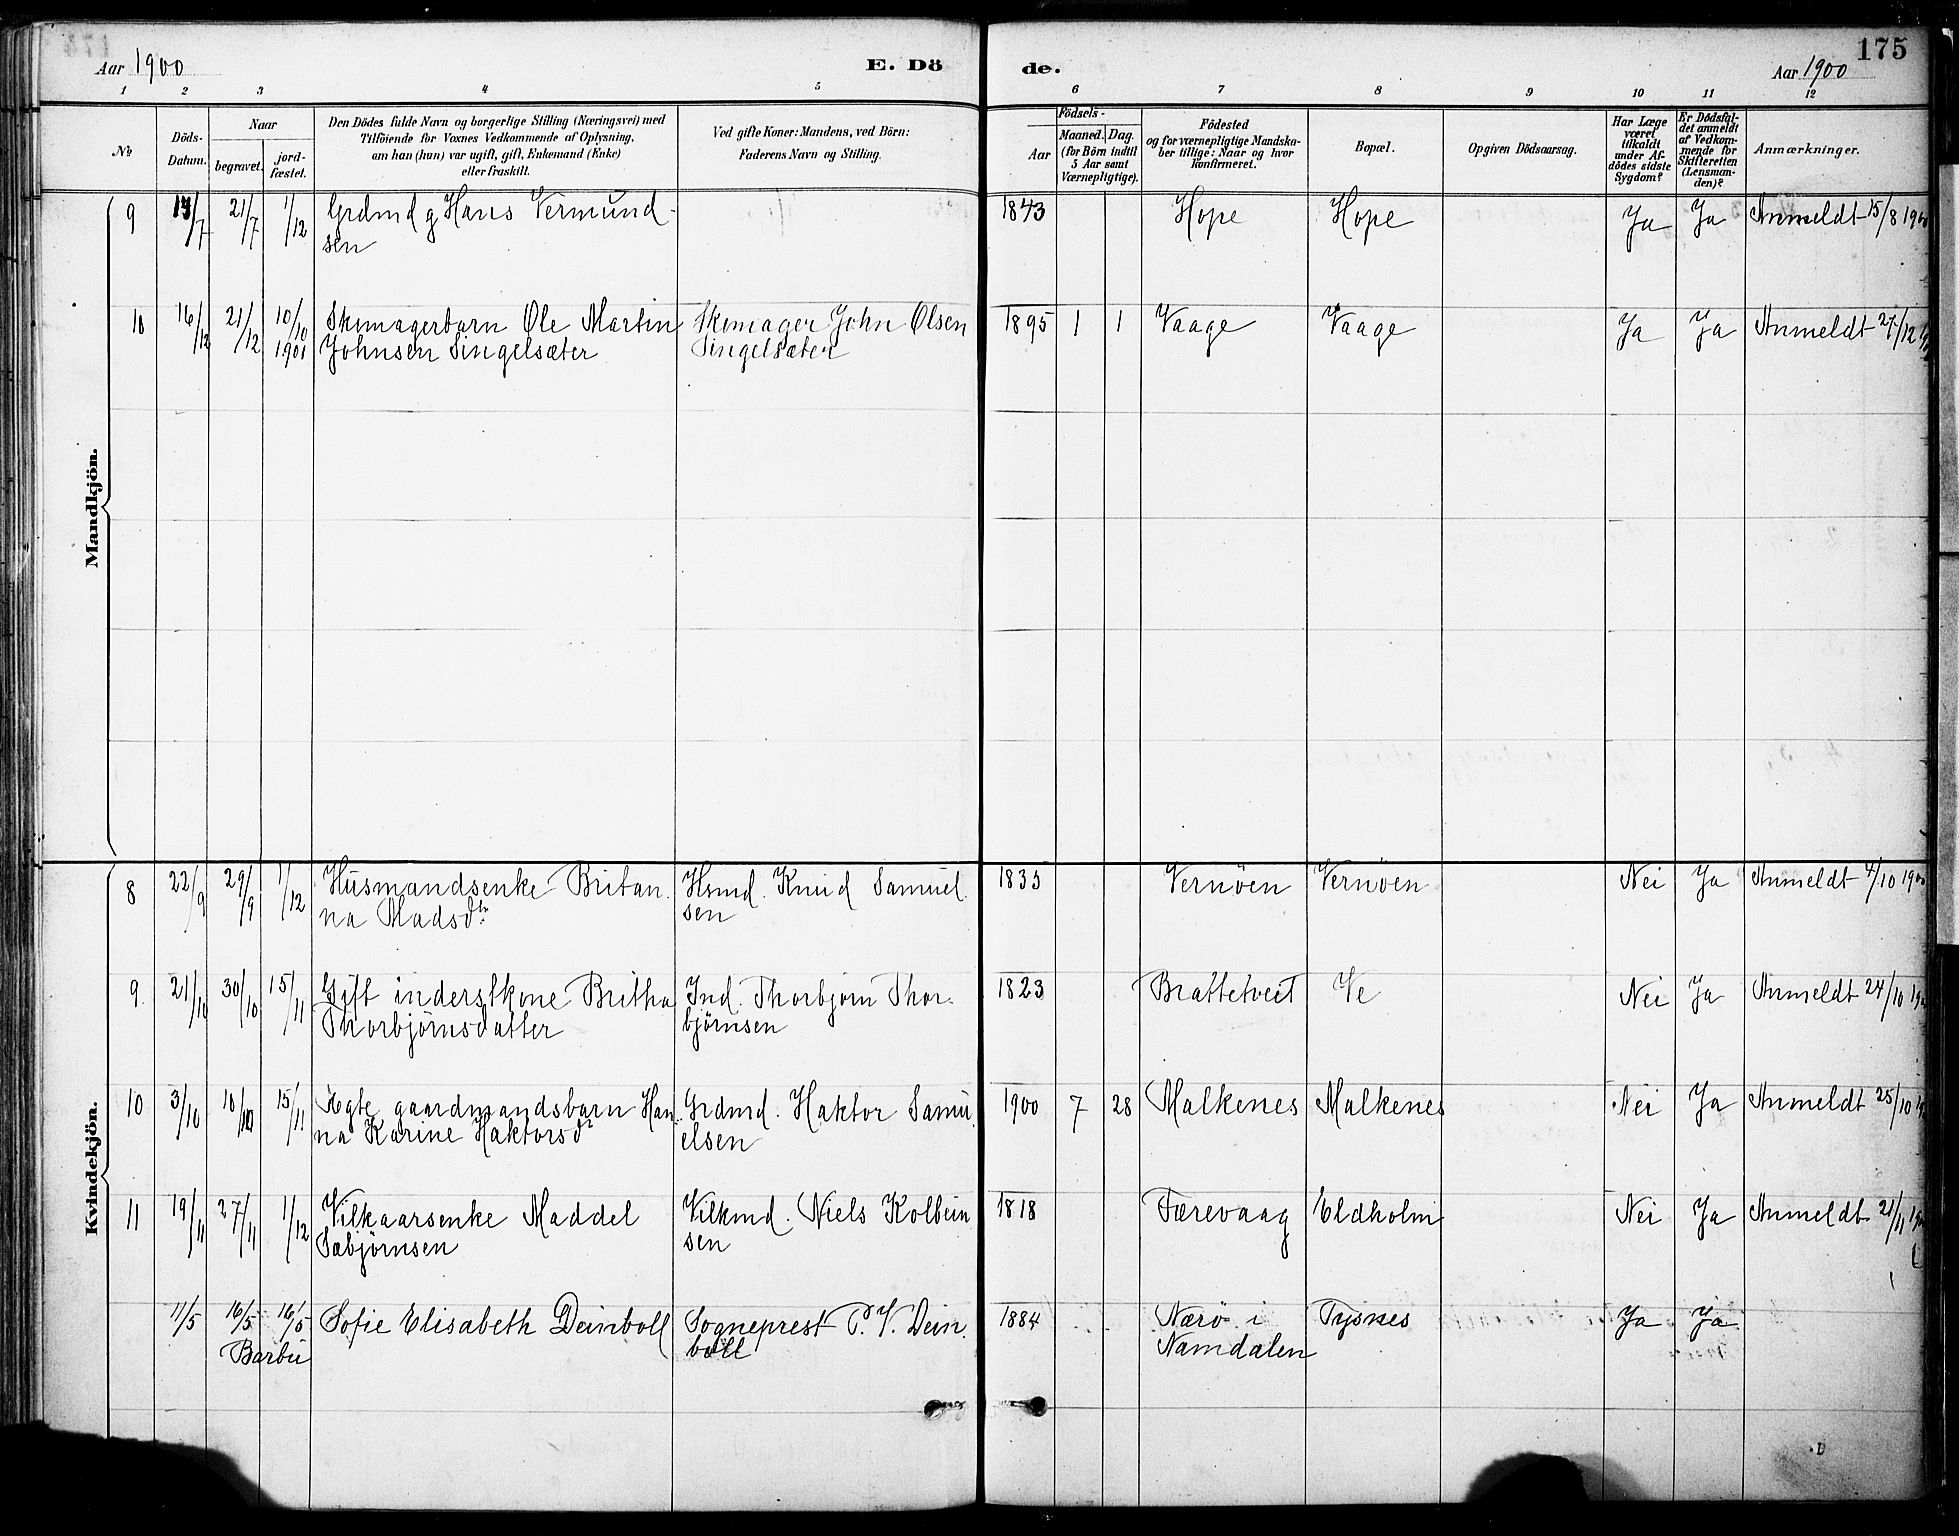 175
Aar 1900
E. Dö
de.
Aar 1900
1 2 3 4 5 6 7 8 9 10 11 12
No
Döds-Datum.
Naar
begravet.
jord-fæstet.
Den Dödes fulde Navn og borgerlige Stilling (Næringsvei) med
Tilföiende for Voxnes Vedkommende af Oplysning,
om han (hun) var ugift, gift, Enkemand (Enke)
eller fraskilt.
Ved gifte Koner: Mandens, ved Börn:
Faderens Navn og Stilling.
Födsels-
Aar
Maaned. Dag.
(for Börn indtil
5 Aar samt
Værnepligtige).
Födested
og for værnepligtige Mandska-
ber tillige: Naar og hvor
konfirmeret.
Bopæl.
Opgiven Dödsaarsag.
Har Læge
været
tilkaldt
under Af-
dödes sidste
Sygdom?
Er Dödsfal-
det anmeldt
af Vedkom-
mende for
Skifteretten
(Lensman-
den)?
Anmærkninger.
Mandkjön.
9 /7 21/7 1/12 Grdmd g Hans Vermund- 1843 Hope Hope Ja Ja Anmeldt 15/8 1900
sen
10 16/12 21/12 10/10 Skomagerbarn Ole Martin Skomager John Olsen 1895 1 1 Vaage Vaage Ja Ja Anmeldt 27/12
1901 Johnsen Singelsæter Singelsæter
Kvindekjön.
8 22/9 29/9 1/12 Husmandsenke Britan- Hsmd. Knud Samuel- 1835 Vernöen Vernöen Nei Ja Anmeldt /10 1900
na Madsdtr sen
9 21/10 30/10 15/11 Gift inderstkone Britha Ind. Thorbjørn Thor- 1823 Brattetveit Ve Nei Ja Anmeldt 24/10
Thorbjørnsdatter bjørnsen
10 3/10 10/10 15/11 Ægte gaardmandsbarn Han- Grdmd. Haktor Samu- 1900 7 28 Malkenes Malkenes Nei Ja Anmeldt 25/10
na Karine Haktorsdr elsen
11 19/11 27/11 1/12 Vilkaarsenke Maddel Vilkmd. Niels Kolbein- 1818 Færevaag Eldholm Nei Ja Anmeldt 21/11
Sæbjørnsen sen
11/5 16/5 16/5 Sofie Elisabeth Deinboll Sogneprest P. V. Dein- 1884 Nærö i Tysnes Ja Ja
Barbu boll Namdalen